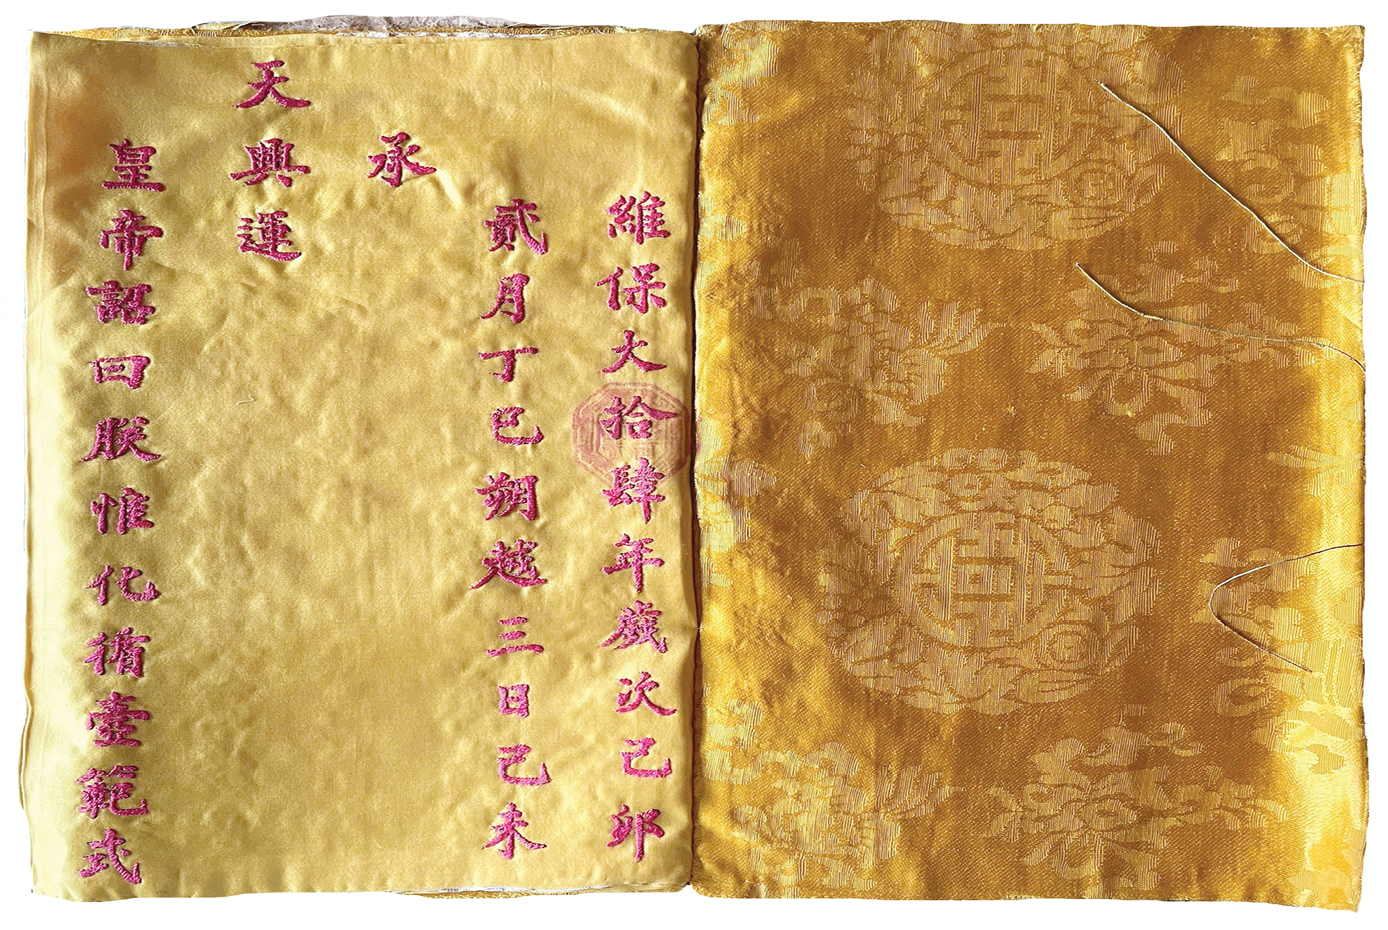 維保大拾肆年歲次己卯
貳月丁巳朔越三日己未
承
天興運
皇帝詔曰朕惟化循壼範式